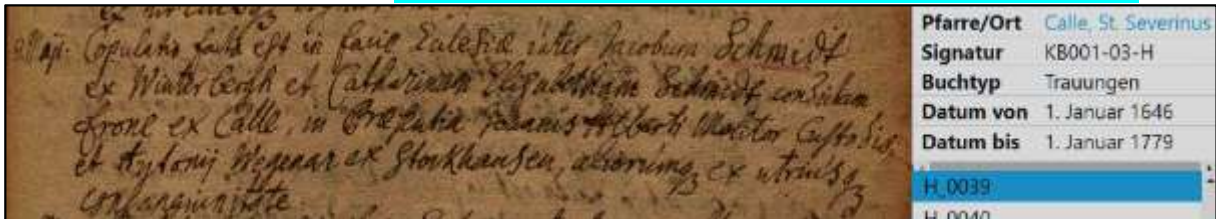 Copulatio facta est in facie Ecclesiæ inter Jacobum Schmidt
ex Winterbergh et Catharinam Elisabetham Schmidt
Frone ex Calle, in Præsentia Joannis Alberti Molitor Custodis,
et Antonij Wegenar ex Stockhausen, aliorumq3 ex utriusq3
consanguinitate
Pfarre/Ort Calle, St. Severinus
Signatur KB001-03-H
Buchtyp Trauungen
Datum von 1. Januar 1646
Datum bis 1. Januar 1779
H_0039
H_0040